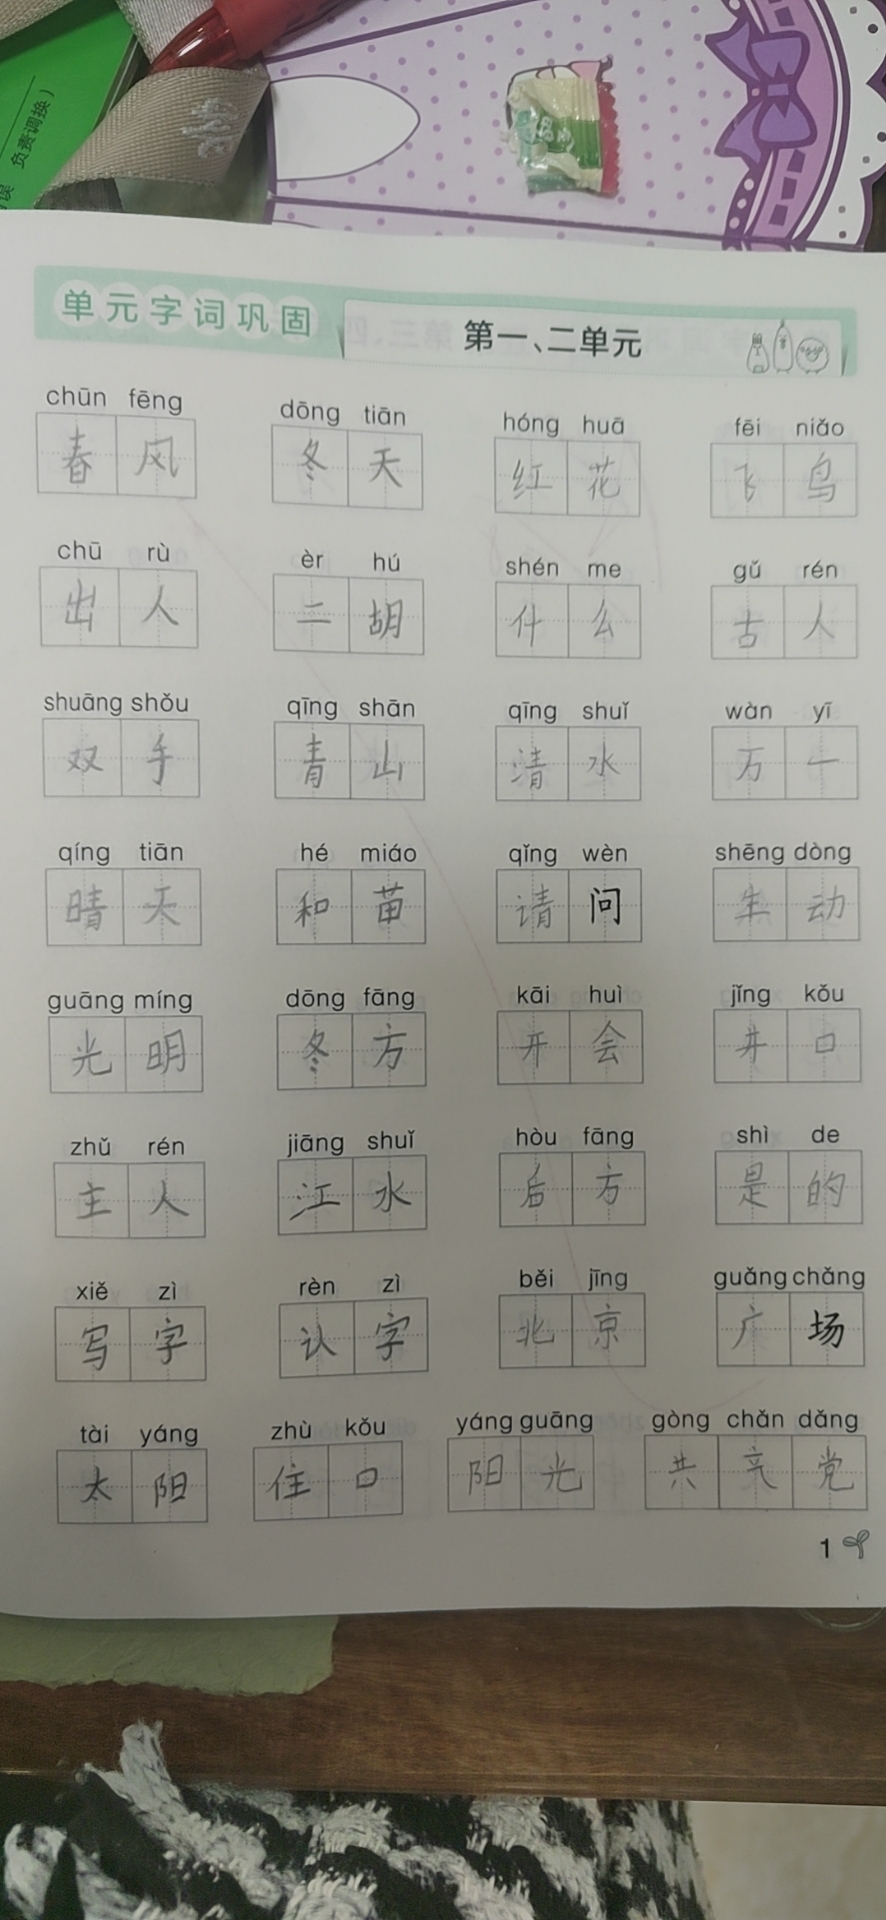 负责调换）
单元字词巩固
第一、二单元
chūn fēng dōng tiān hóng huā fēi niǎo
春风 冬天 红花 飞鸟
chū rù èr hú shén me gǔ rén
出人 二胡 什么 古人
shuāng shǒu qīng shān qīng shuǐ wàn yī
双手 青山 清水 万一
qíng tiān hé miáo qǐng wèn shēng dòng
晴天 和苗 请问 生动
guāng míng dōng fāng kāi huì jǐng kǒu
光明 冬方 开会 井口
zhǔ rén jiāng shuǐ hòu fāng shì de
主人 江水 后方 是的
xiě zì rèn zì běi jīng guǎng chǎng
写字 认字 北京 广场
tài yáng zhù kǒu yáng guāng gòng chǎn dǎng
太阳 住口 阳光 共产党
1